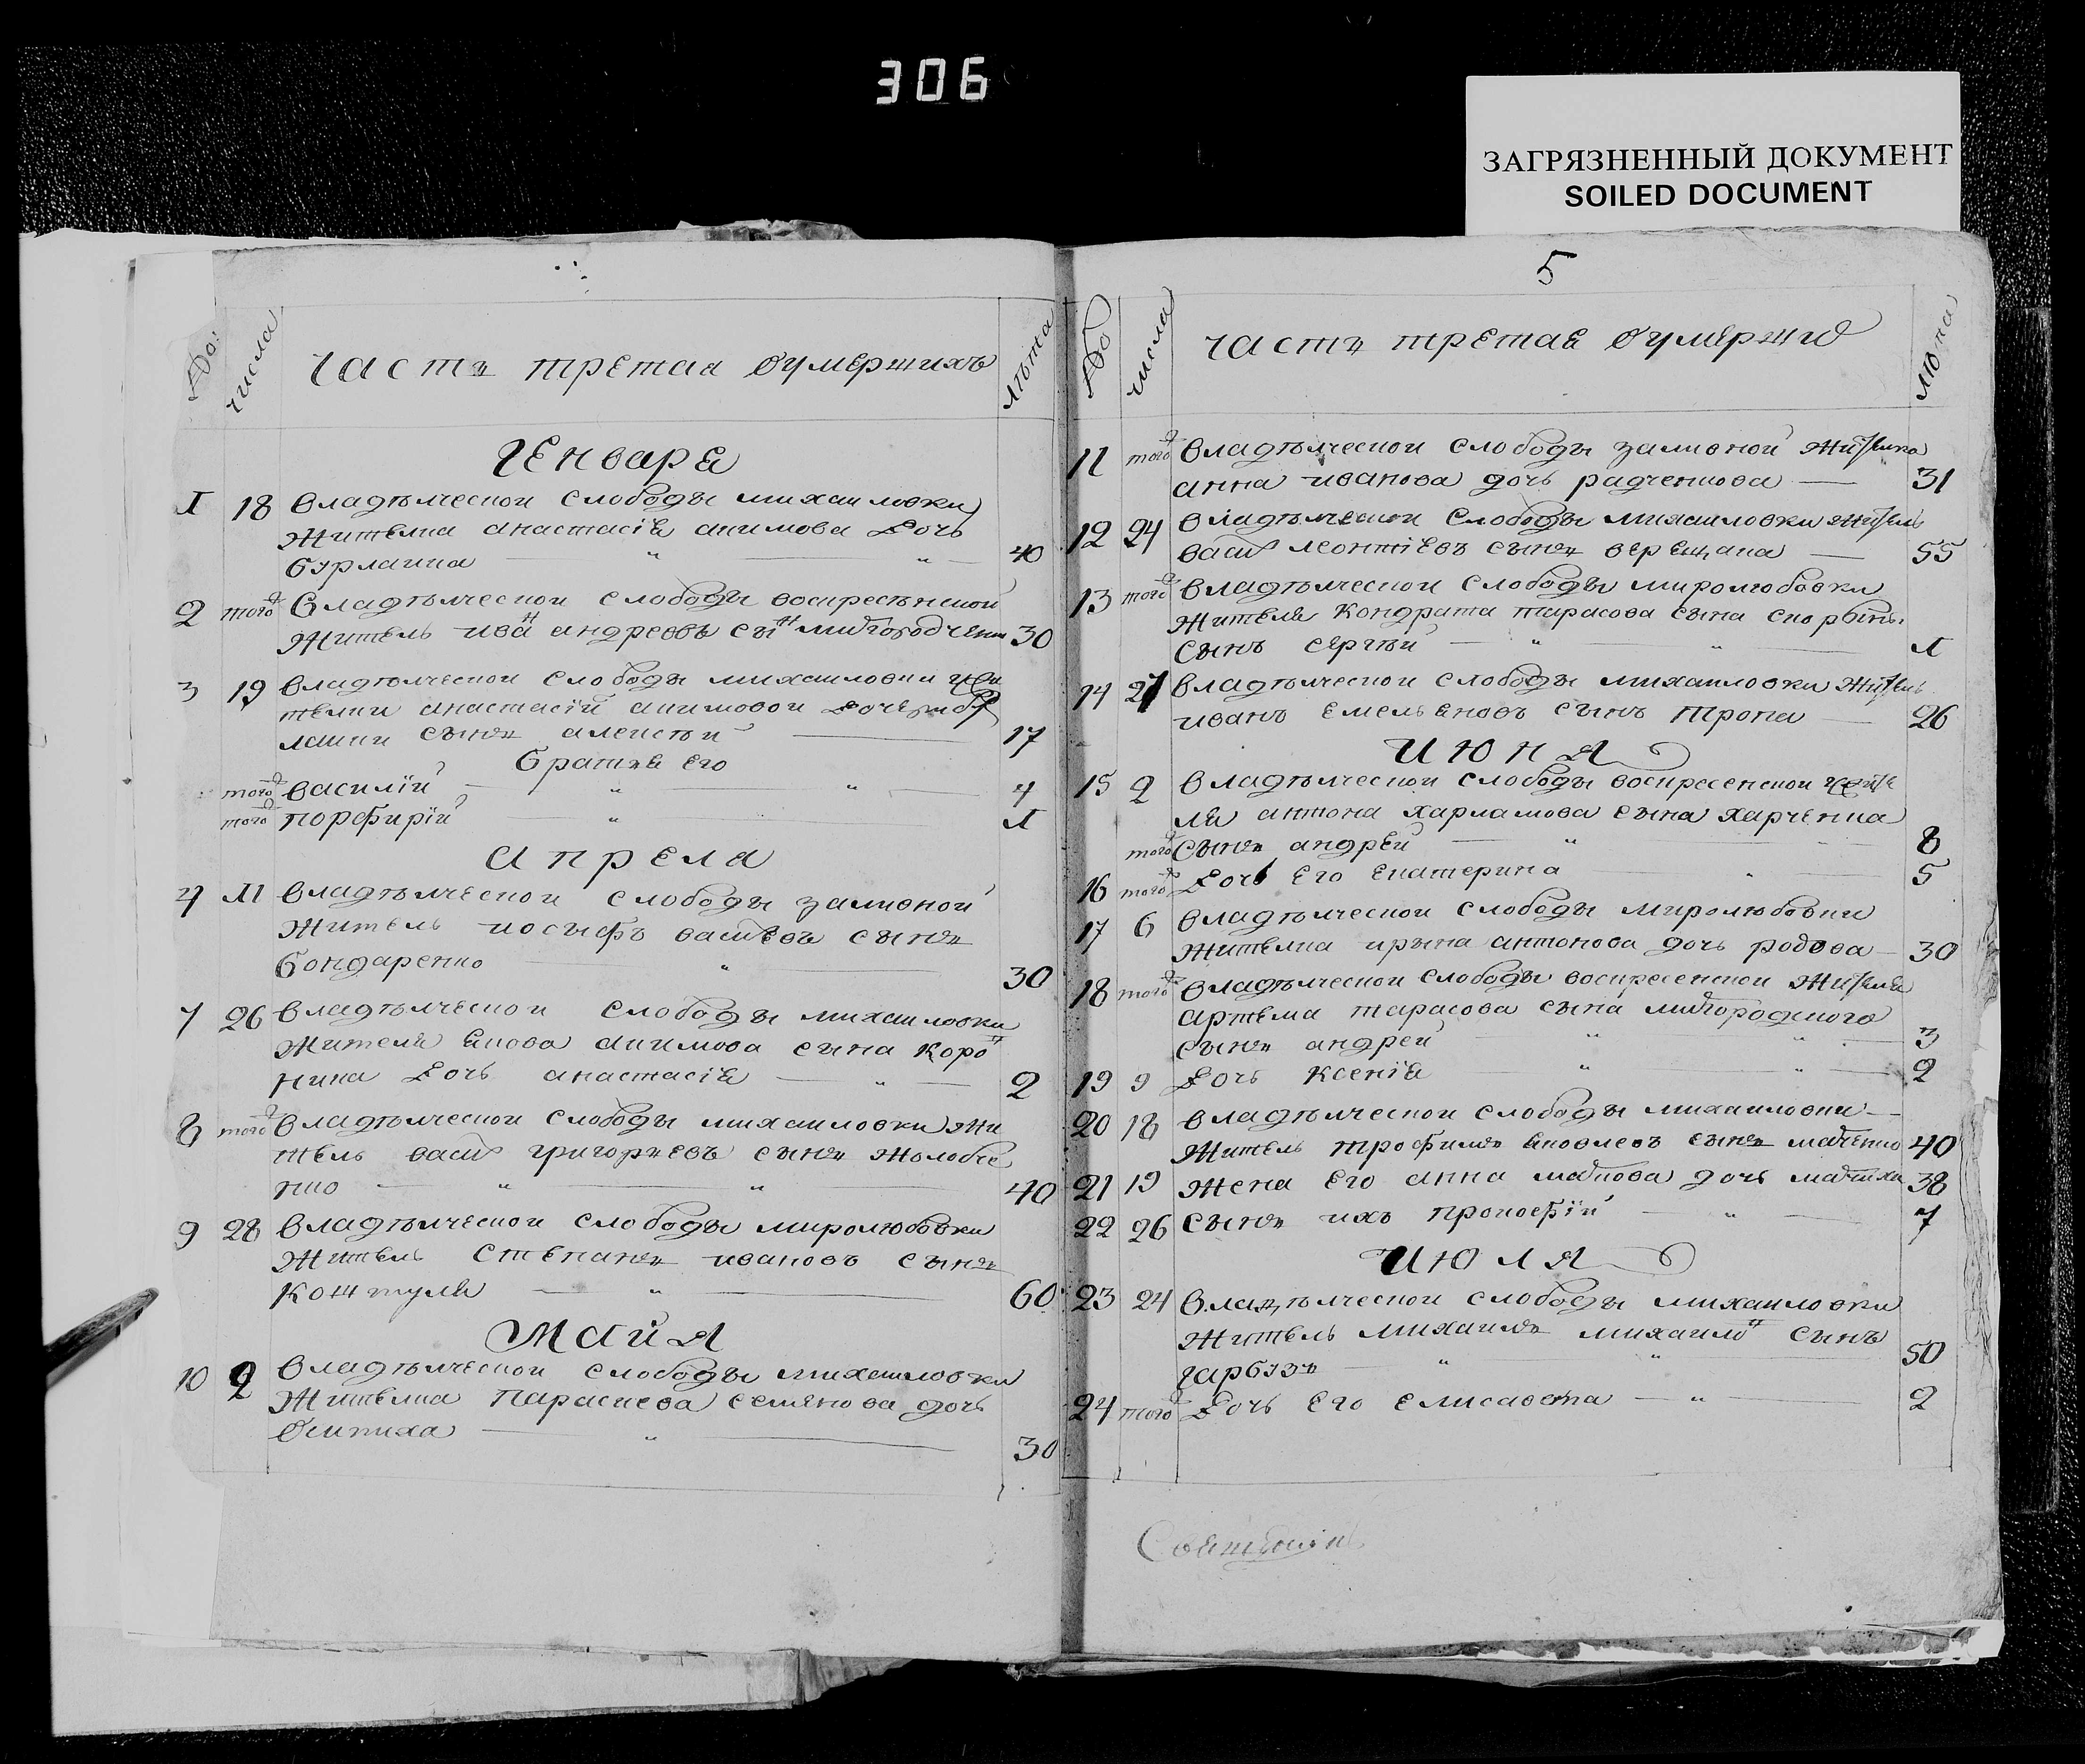 306
ЗАГРЯЗНЕННЫЙ ДОКУМЕНТ
SOILED DOCUMENT
числа
часть третая оумершихъ
лѣта
Генваря
1 18 владѣлческои слободы михаиловки
жителка анастасія акимова дочь
бурлачка 40
2 того владѣлческои слободы воскресѣнской
житель иван андреевъ сын миргородченко 30
3 19 владѣлческои слободы михаиловки жи
телки анастасіи акимовои дочери бур
лачки сынъ алексѣй 17
братья его
того василій 4
того порфирій 1
апреля
4 11 владѣлческои слободы заливной
житель иосыфъ василевъ сынъ
бондаренко 30
7 26 владѣлческои слободы михаиловки
жителя якова акимова сына коро
дочь анастасія 2
8 того владѣлческои слободы михаиловки жи
тель васил григорьевъ сынъ жолобе
нко 40
9 28 владѣлческои слободы миролюбовки
житель стѣпанъ ивановъ сынъ
коштуля 60
Майя
10 2 владѣлческои слободы михаиловки
жителка параскева семянова дочь
осипиха 30
5
числа
часть третая оумерши
лѣта
11 того владѣлческои слободы заливной жителка
анна иванова дочь радченкова 31
12 24 владѣлческои слободы михаиловки житель
васил леонтіевъ сынъ верещака 55
13 того владѣлческои слободы миролюбовки
жителя кондрата тарасова сына
сынъ сергѣй 1
14 27 владѣлческои слободы михаиловки житель
иванъ емельяновъ сынъ тропа 26
июня
15 2 владѣлческои слободы воскресенской жите
ля антона харламова сына харченка
того сынъ андрей 8
16 того дочь его екатерина 5
17 6 владѣлческои слободы миролюбовки
жителка ирына антонова дочь родова 30
18 того владѣлческои слободы воскресенской жителя
артема тарасова сына миргородского
сынъ андрей 3
19 9 дочь ксенія 2
20 18 владѣлческои слободы михаиловки
житель трофимъ яковлевъ сынъ 40
21 19 жена его анна дочь 38
22 26 сынъ ихъ прокофій 7
июля
23 24 владѣлческои слободы михаиловки
житель михаилъ михаило сынъ
гарбузъ 50
24 того дочь его елисавета 2